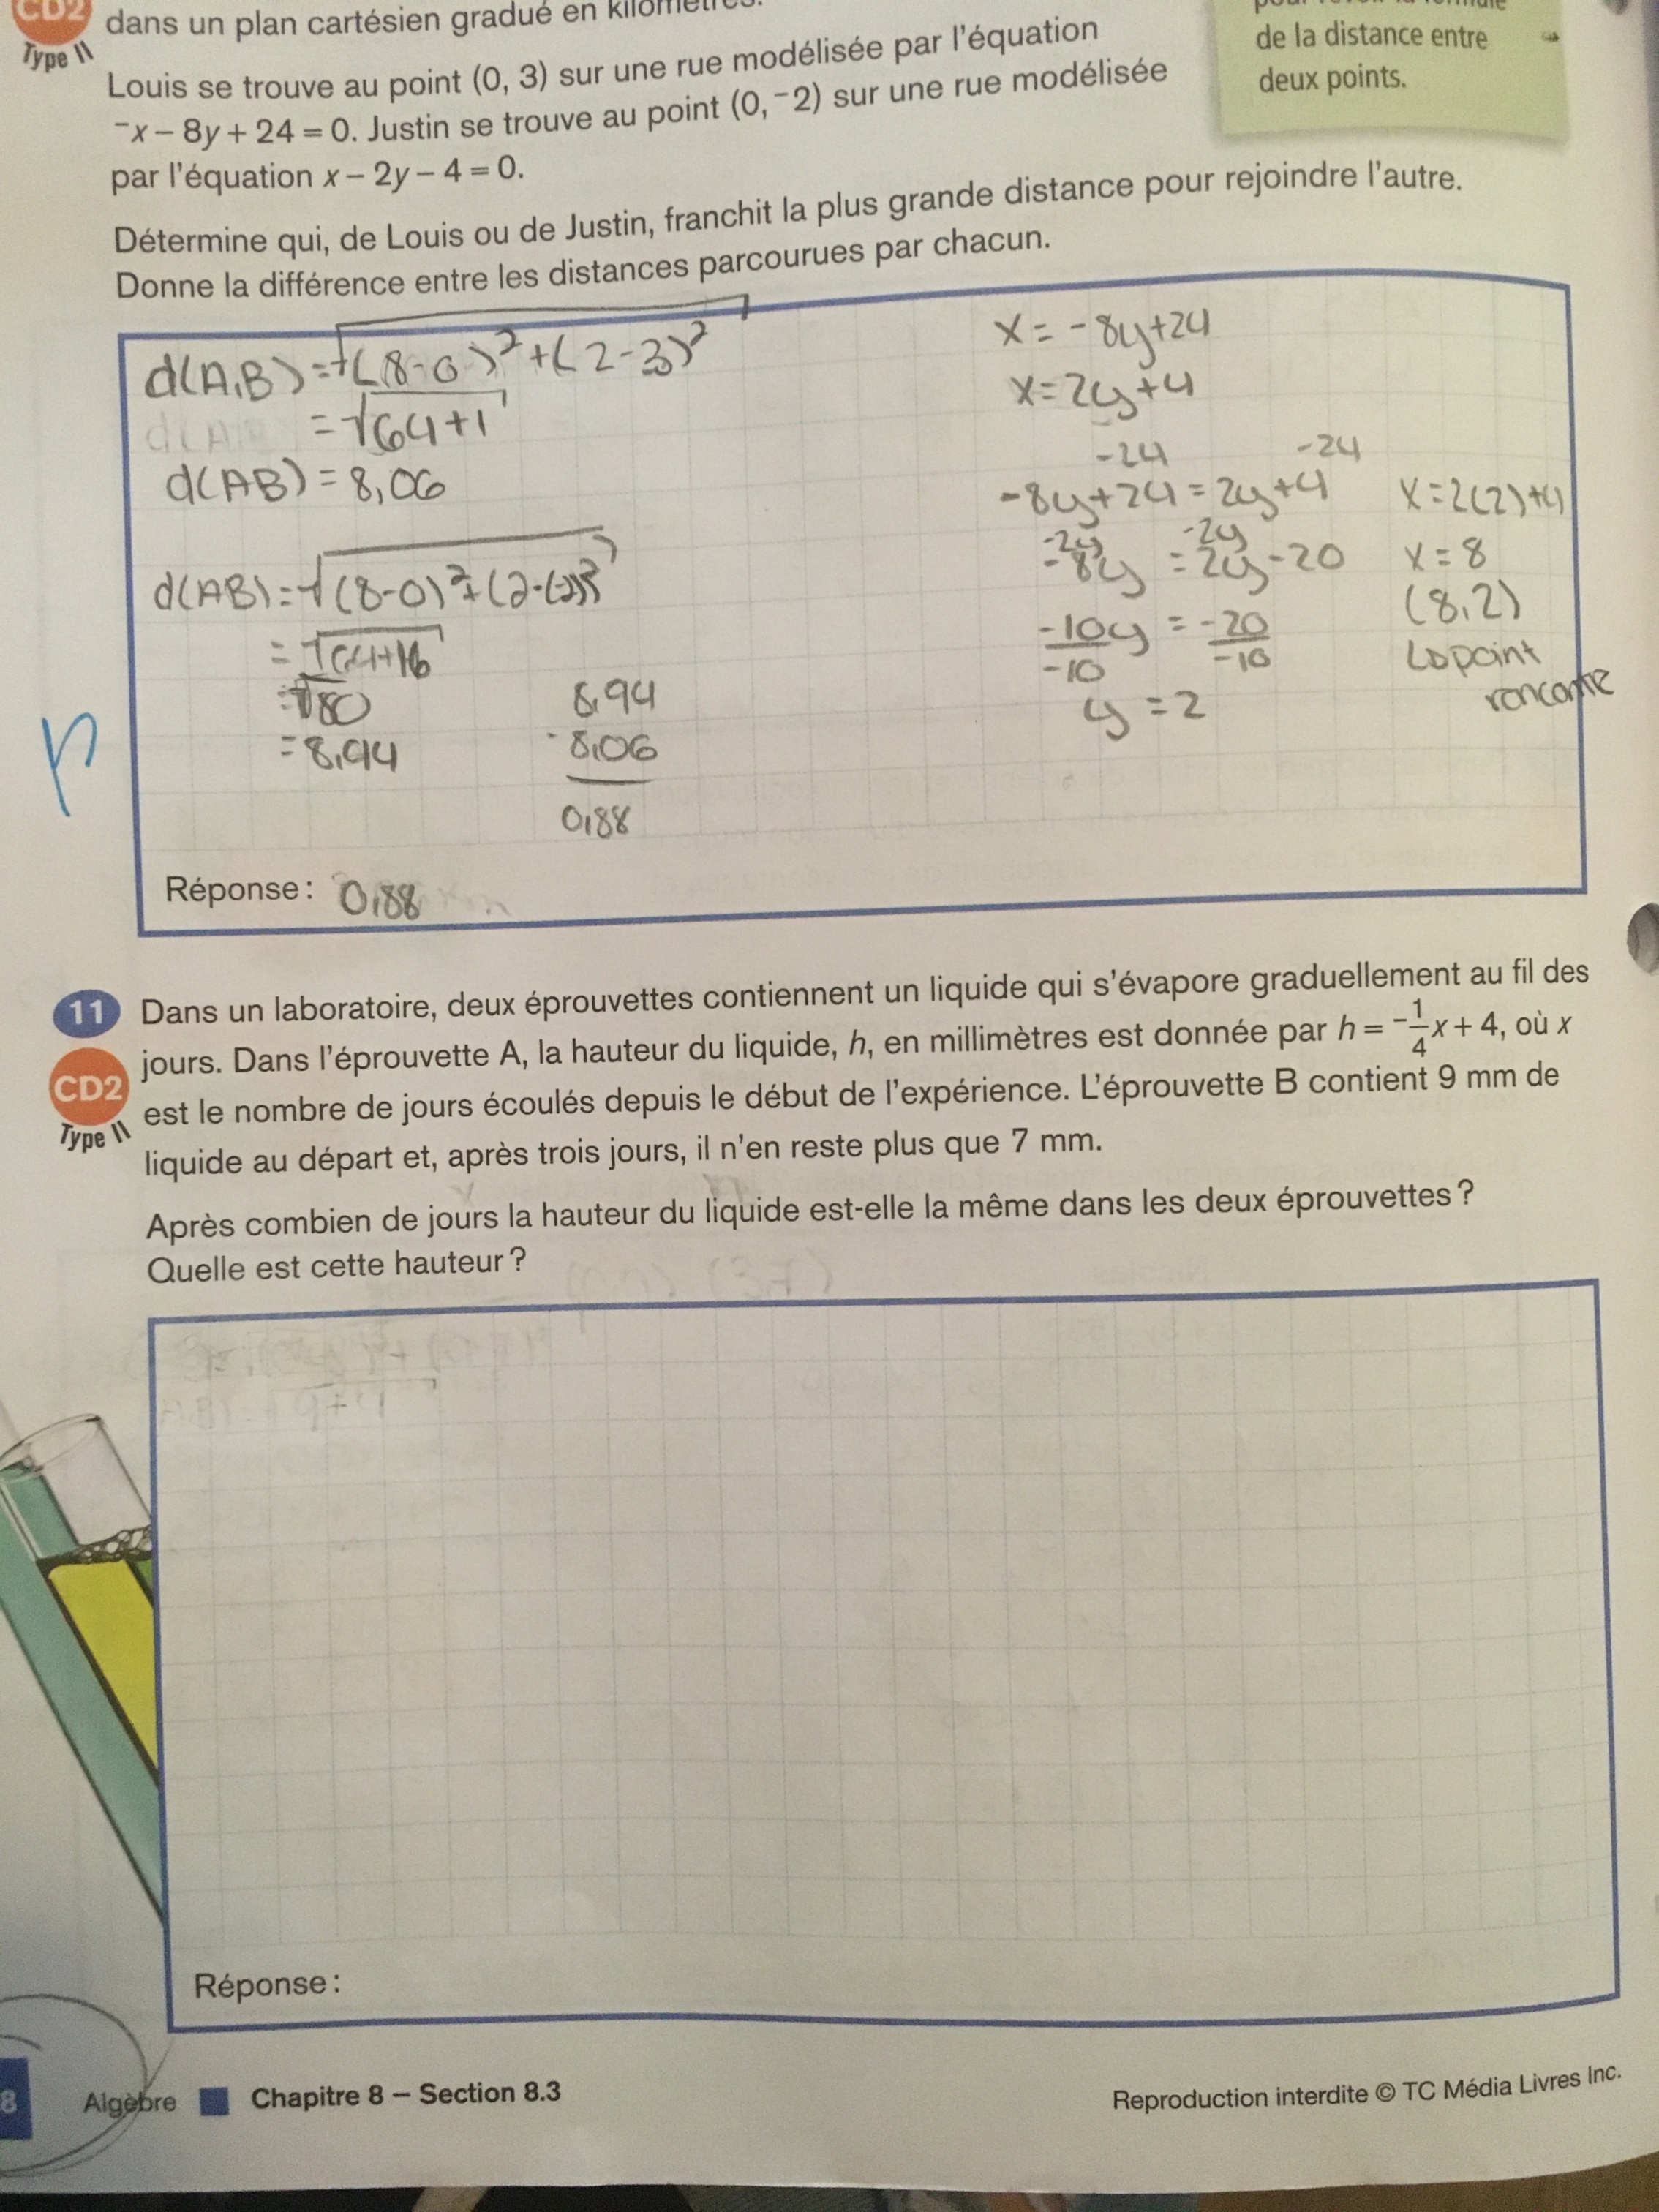 CD2
Type II
dans un plan cartésien gradué en kilomètres.
Louis se trouve au point (0, 3) sur une rue modélisée par l'équation
⁻x – 8y + 24 = 0. Justin se trouve au point (0, ⁻2) sur une rue modélisée
par l'équation x – 2y – 4 = 0.
de la distance entre
deux points.
Détermine qui, de Louis ou de Justin, franchit la plus grande distance pour rejoindre l'autre.
Donne la différence entre les distances parcourues par chacun.
d(A,B) = √(8-0)² + (2-3)²
= √64+1
d(AB) = 8,06
d(AB) = √(8-0)² + (2-(-2))²
= √64+16
= √80
= 8,94
8,94
- 8,06
0,88
x = -8y+24
x = 2y+4
-24 -24
-8y+24 = 2y+4
-2y -2y
-8y = 2y-20
-10y = -20
-10 -10
y = 2
x = 2(2)+4
x = 8
(8,2)
↳ point
rencontre
Réponse : 0,88
11 Dans un laboratoire, deux éprouvettes contiennent un liquide qui s'évapore graduellement au fil des
jours. Dans l'éprouvette A, la hauteur du liquide, h, en millimètres est donnée par h = ⁻1/4 x + 4, où x
CD2
Type II
est le nombre de jours écoulés depuis le début de l'expérience. L'éprouvette B contient 9 mm de
liquide au départ et, après trois jours, il n'en reste plus que 7 mm.
Après combien de jours la hauteur du liquide est-elle la même dans les deux éprouvettes ?
Quelle est cette hauteur ?
Réponse :
8 Algèbre ■ Chapitre 8 – Section 8.3
Reproduction interdite © TC Média Livres Inc.